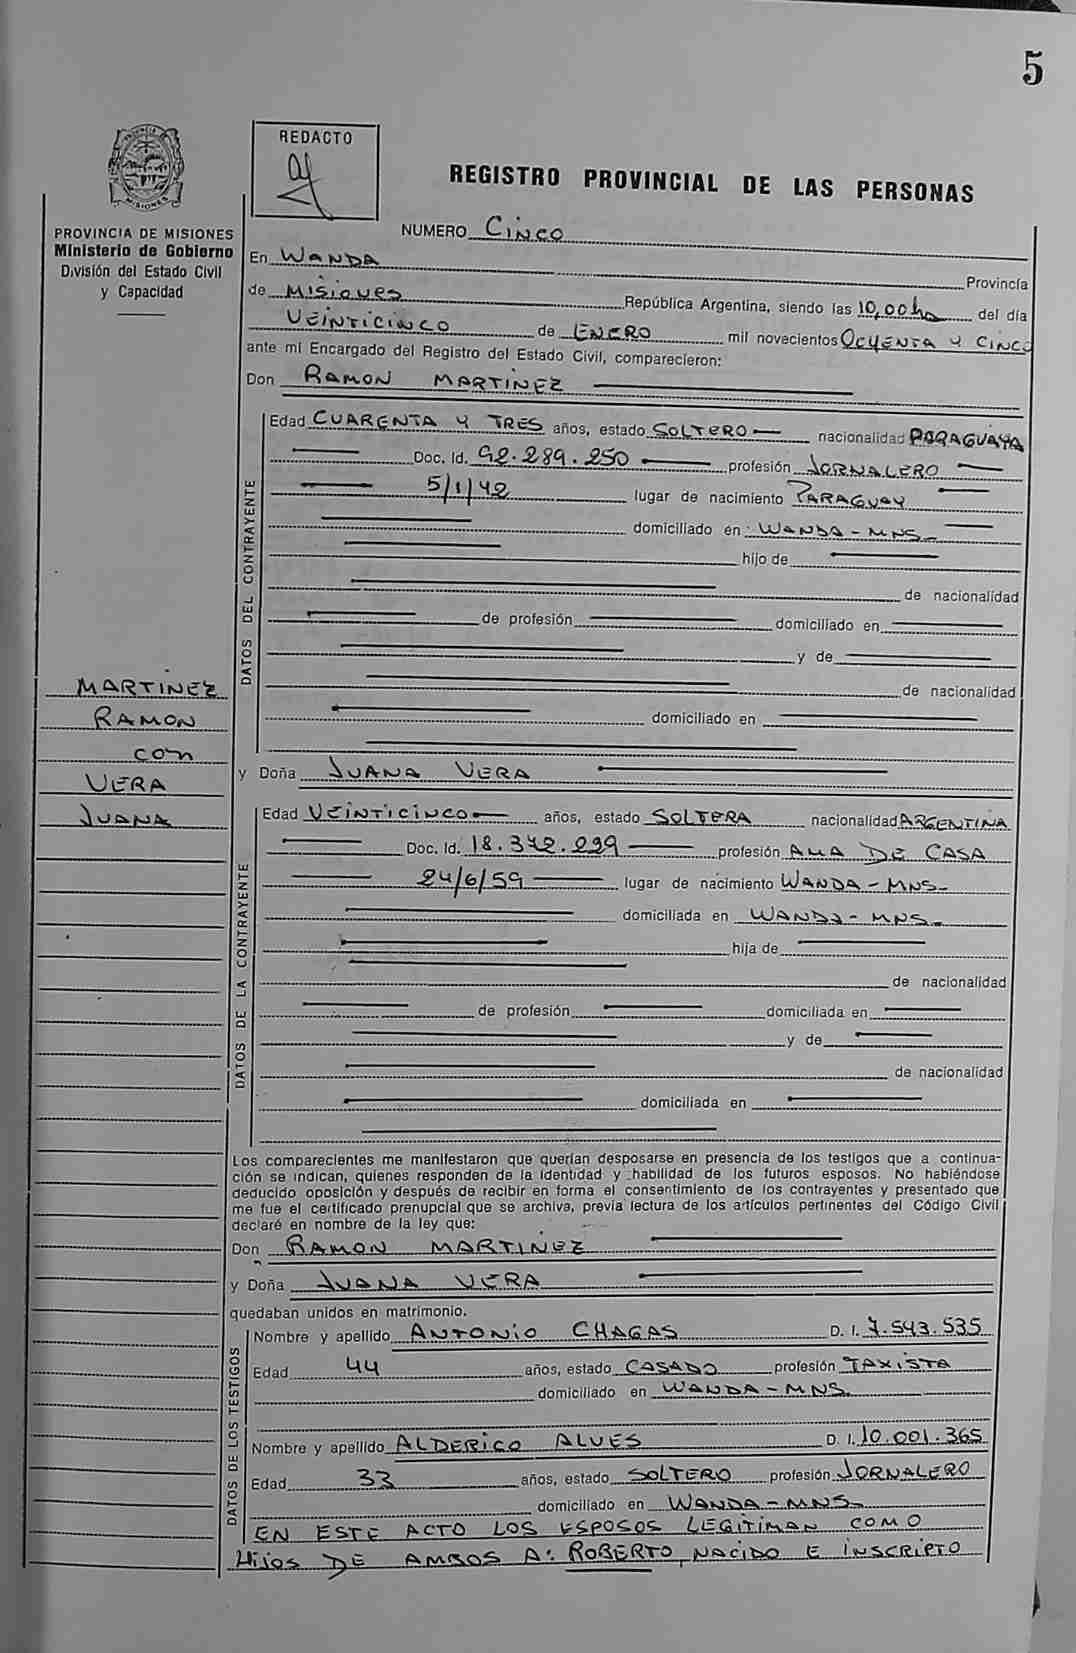 5
REDACTO
REGISTRO PROVINCIAL DE LAS PERSONAS
PROVINCIA DE MISIONES
Ministerio de Gobierno
División del Estado Civil
y Capacidad
NUMERO CINCO
En WANDA Provincia
de MISIONES República Argentina, siendo las 10,00 hs del día
VEINTICINCO de ENERO mil novecientos OCHENTA Y CINCO
ante mi Encargado del Registro del Estado Civil, comparecieron:
Don RAMON MARTINEZ
DATOS DEL CONTRAYENTE
Edad CUARENTA Y TRES años, estado SOLTERO nacionalidad PARAGUAYA
Doc. Id. 92.289.250 profesión JORNALERO
5/1/42 lugar de nacimiento PARAGUAY
domiciliado en WANDA - MNS
hijo de
de nacionalidad
de profesión domiciliado en
y de
de nacionalidad
domiciliado en
MARTINEZ
RAMON
con
VERA
JUANA
y Doña JUANA VERA
DATOS DE LA CONTRAYENTE
Edad VEINTICINCO años, estado SOLTERA nacionalidad ARGENTINA
Doc. Id. 18.342.299 profesión AMA DE CASA
24/6/59 lugar de nacimiento WANDA - MNS-
domiciliada en WANDA - MNS-
hija de
de nacionalidad
de profesión domiciliada en
y de
de nacionalidad
domiciliada en
Los comparecientes me manifestaron que querían desposarse en presencia de los testigos que a continua-
ción se indican, quienes responden de la identidad y habilidad de los futuros esposos. No habiéndose
deducido oposición y después de recibir en forma el consentimiento de los contrayentes y presentado que
me fue el certificado prenupcial que se archiva, previa lectura de los artículos pertinentes del Código Civil
declaré en nombre de la ley que:
Don RAMON MARTINEZ
y Doña JUANA VERA
quedaban unidos en matrimonio.
DATOS DE LOS TESTIGOS
Nombre y apellido ANTONIO CHAGAS D. I. 7.543.535
Edad 44 años, estado CASADO profesión TAXISTA
domiciliado en WANDA - MNS.
Nombre y apellido ALDERICO ALVES D. I. 10.001.365
Edad 33 años, estado SOLTERO profesión JORNALERO
domiciliado en WANDA - MNS-
EN ESTE ACTO LOS ESPOSOS LEGITIMAN COMO
HIJOS DE AMBOS A: ROBERTO, NACIDO E INSCRIPTO